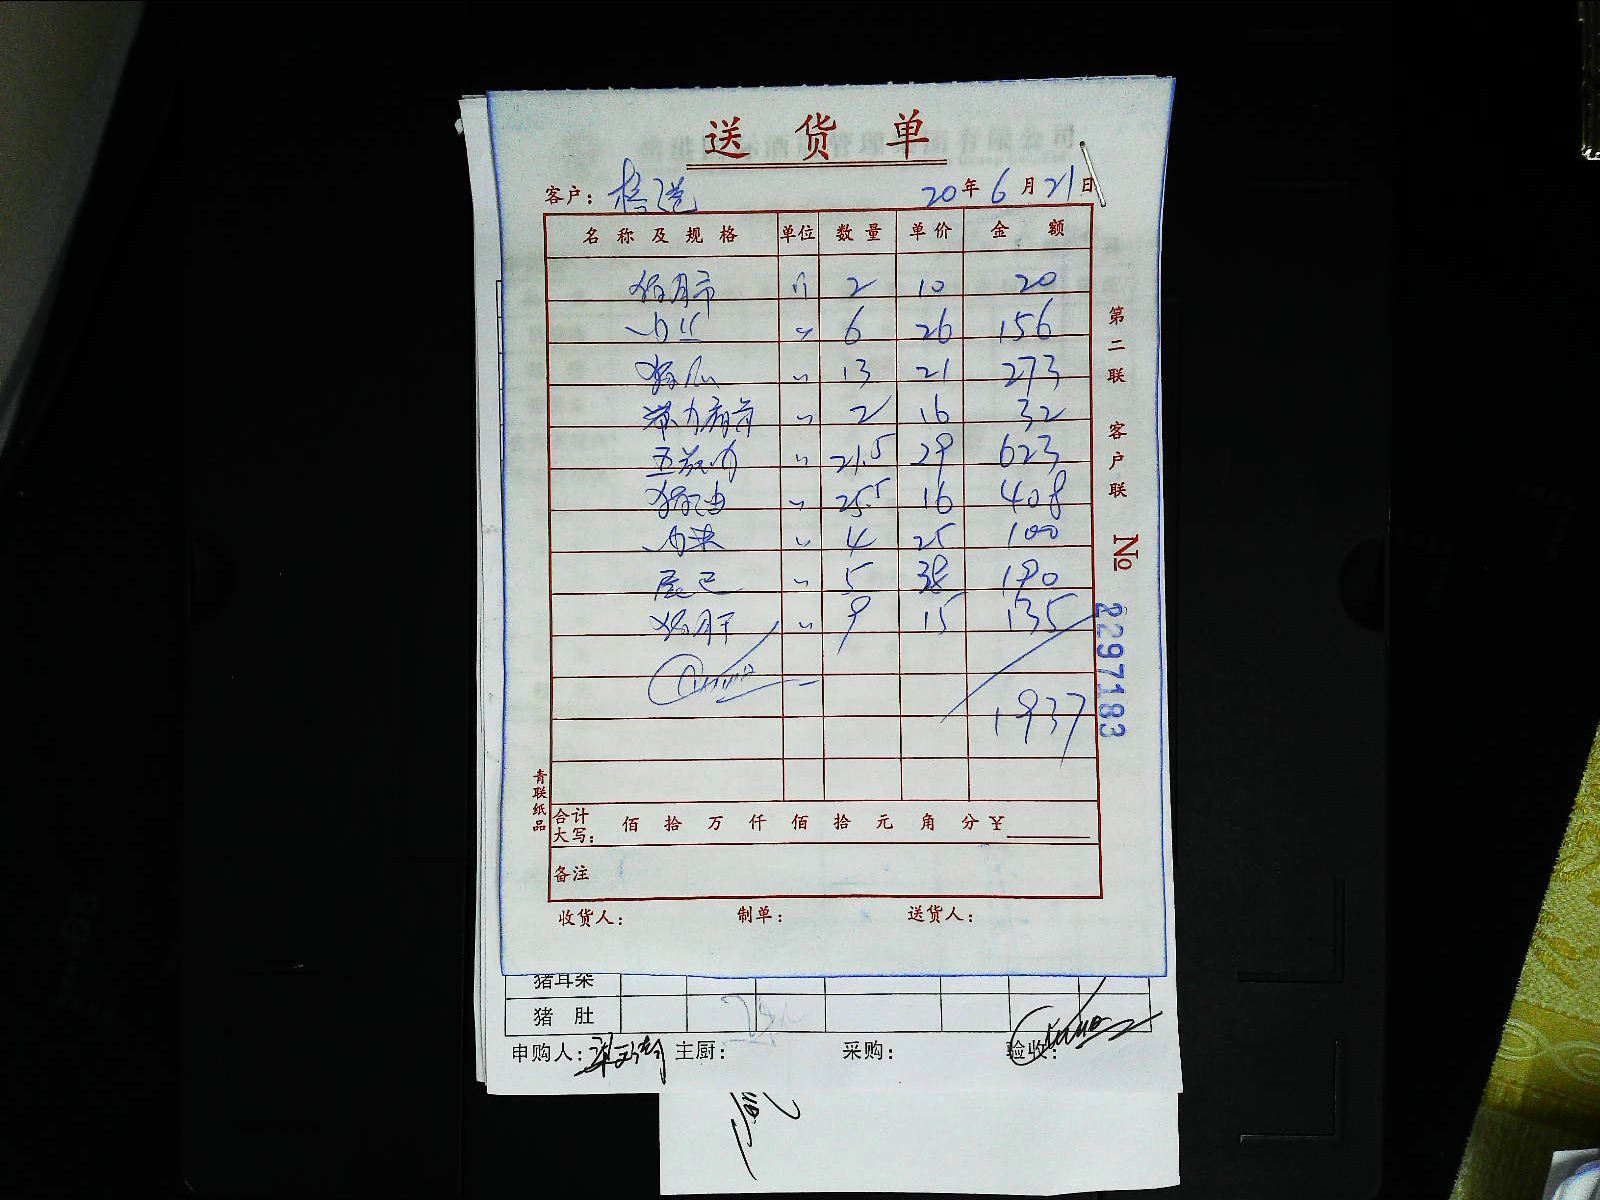 送货单
客户： 20年6月21日
名称及规格 单位 数量 单价 金额
猪肺 斤 2 10 20
肉丝 〃 6 26 156
〃 13 21 273
〃 2 16 32
五花肉 〃 21.5 29 623
猪油 〃 25.5 16 408
〃 4 25 100
〃 5 38 190
猪肝 〃 9 15 135
1937
合计大写： 佰 拾 万 仟 佰 拾 元 角 分 ￥
备注
收货人： 制单： 送货人：
青联纸品
第二联 客户联
No 2297183
猪耳朵
猪肚
申购人： 主厨： 采购： 验收：